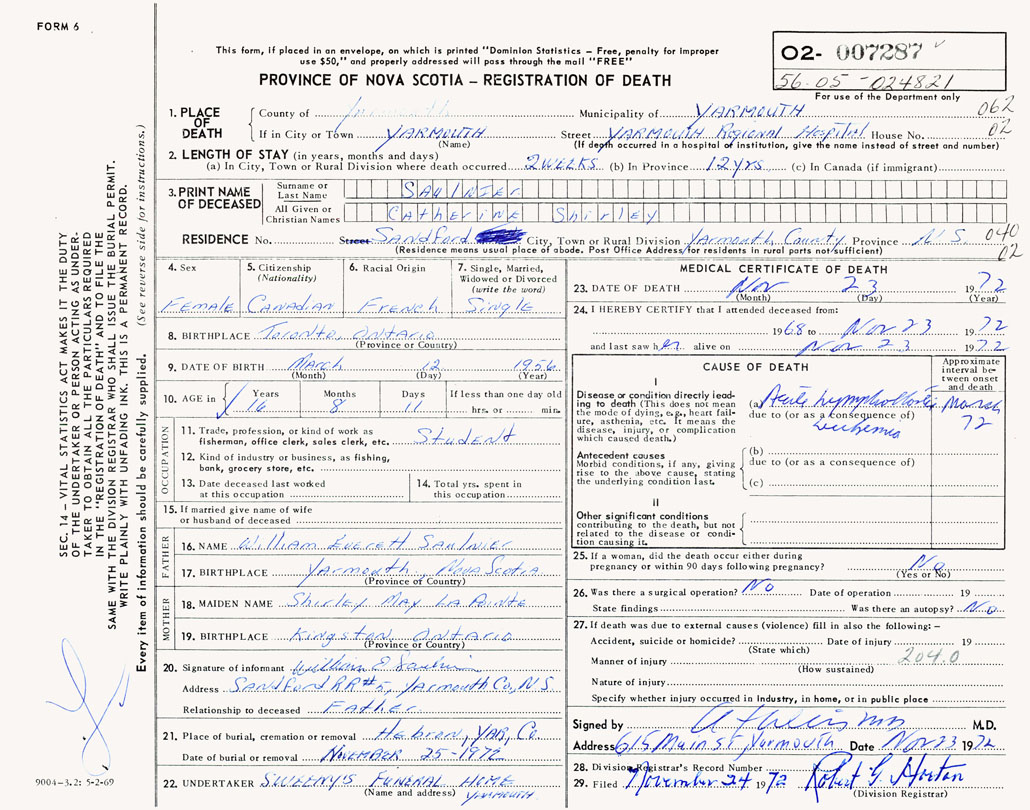 FORM 6
This form, if placed in an envelope, on which is printed "Dominion Statistics – Free, penalty for improper
use $50," and properly addressed will pass through the mail "FREE"
PROVINCE OF NOVA SCOTIA – REGISTRATION OF DEATH
02- 007287
56.05 - 024821
For use of the Department only
1. PLACE OF DEATH
County of Yarmouth Municipality of YARMOUTH 062
If in City or Town YARMOUTH (Name) Street YARMOUTH Regional Hospital House No. 02
(If death occurred in a hospital of institution, give the name instead of street and number)
2. LENGTH OF STAY (in years, months and days)
(a) In City, Town or Rural Division where death occurred 2 WEEKS (b) In Province 12 yrs (c) In Canada (if immigrant)
3. PRINT NAME OF DECEASED
Surname or Last Name SAULNIER
All Given or Christian Names Catherine Shirley
RESIDENCE No. Street Sandford City, Town or Rural Division Yarmouth County Province N.S. 040
(Residence means usual place of abode. Post Office Address for residents in rural parts not sufficient) 02
4. Sex
Female
5. Citizenship (Nationality)
Canadian
6. Racial Origin
French
7. Single, Married, Widowed or Divorced (write the word)
Single
8. BIRTHPLACE Toronto, Ontario
(Province or Country)
9. DATE OF BIRTH March 12 1956
(Month) (Day) (Year)
10. AGE in Years Months Days If less than one day old
16 8 11 hrs. or min.
OCCUPATION
11. Trade, profession, or kind of work as
fisherman, office clerk, sales clerk, etc. Student
12. Kind of industry or business, as fishing,
bank, grocery store, etc.
13. Date deceased last worked
at this occupation
14. Total yrs. spent in
this occupation
15. If married give name of wife
or husband of deceased
FATHER
16. NAME William Everett Saulnier
17. BIRTHPLACE Yarmouth, Nova Scotia
(Province or Country)
MOTHER
18. MAIDEN NAME Shirley May La Pointe
19. BIRTHPLACE Kingston, Ontario
(Province or Country)
20. Signature of informant William E Saulnier
Address Sandford RR#5, Yarmouth Co, N.S.
Relationship to deceased Father
21. Place of burial, cremation or removal Hebron, YAR, Co.
Date of burial or removal November 25-1972
22. UNDERTAKER SWEENY'S FUNERAL HOME
(Name and address) YARMOUTH
MEDICAL CERTIFICATE OF DEATH
23. DATE OF DEATH Nov 23 1972
(Month) (Day) (Year)
24. I HEREBY CERTIFY that I attended deceased from:
1968 to Nov 23 1972
and last saw her alive on Nov 23 1972
CAUSE OF DEATH
Approximate interval between onset and death
I
Disease or condition directly leading to death (This does not mean
the mode of dying, e.g., heart failure, asthenia, etc. It means the
disease, injury, or complication
which caused death.)
(a) Acute Lymphoblastic March
due to (or as a consequence of) 72
Leukemia
Antecedent causes
Morbid conditions, if any, giving
rise to the above cause, stating
the underlying condition last.
(b)
due to (or as a consequence of)
(c)
II
Other significant conditions
contributing to the death, but not
related to the disease or condition causing it.
25. If a woman, did the death occur either during
pregnancy or within 90 days following pregnancy? No
(Yes or No)
26. Was there a surgical operation? NO Date of operation 19
State findings Was there an autopsy? No
27. If death was due to external causes (violence) fill in also the following:–
Accident, suicide or homicide? Date of injury 19
(State which)
Manner of injury 204.0
(How sustained)
Nature of injury
Specify whether injury occurred in Industry, in home, or in public place
Signed by M.D.
Address 615 Main st Yarmouth Date Nov 23 1972
28. Division Registrar's Record Number
29. Filed November 24 1972 Robert G. Horton
(Division Registrar)
SEC. 14 – VITAL STATISTICS ACT MAKES IT THE DUTY
OF THE UNDERTAKER OR PERSON ACTING AS UNDER-
TAKER TO OBTAIN ALL THE PARTICULARS REQUIRED
IN THE "REGISTRATION OF DEATH" AND TO FILE THE
SAME WITH THE DIVISION REGISTRAR WHO SHALL ISSUE THE BURIAL PERMIT.
WRITE PLAINLY WITH UNFADING INK. THIS IS A PERMANENT RECORD.
Every item of information should be carefully supplied. (See reverse side for instructions.)
9004-3.2: 5-2-69